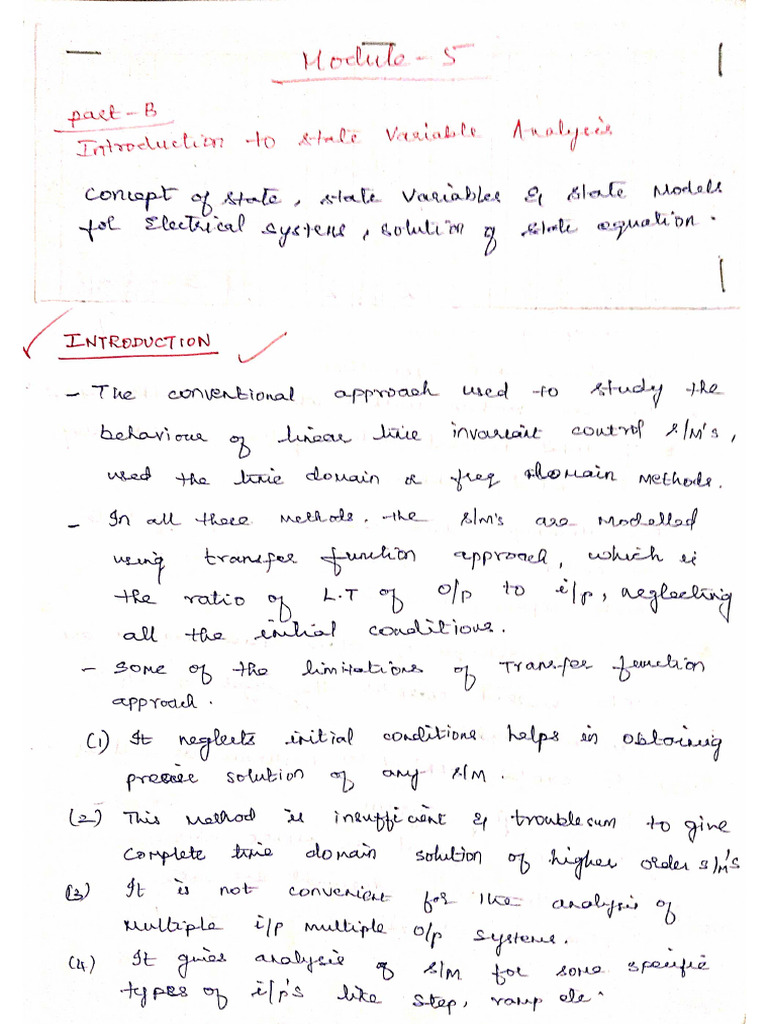 Module - 5
Part - B
Introduction to State Variable Analysis
Concept of state, state variables & state Models
for Electrical systems, solution of state equation.
INTRODUCTION
- The conventional approach used to study the
behaviour of linear time invariant control s/m's,
used the time domain & freq domain methods.
- In all these methods. the s/m's are modelled
using transfer function approach, which is
the ratio of L.T of o/p to i/p, neglecting
all the initial conditions.
- Some of the limitations of Transfer function
approach.
(1) It neglects initial conditions helps in obtaining
precise solution of any s/m.
(2) This method is insufficient & troublesum to give
complete time domain solution of higher order s/m's
(3) It is not convenient for the analysis of
multiple i/p multiple o/p systems.
(4) It gives analysis of s/m for some specific
types of i/p's like step, ramp etc.